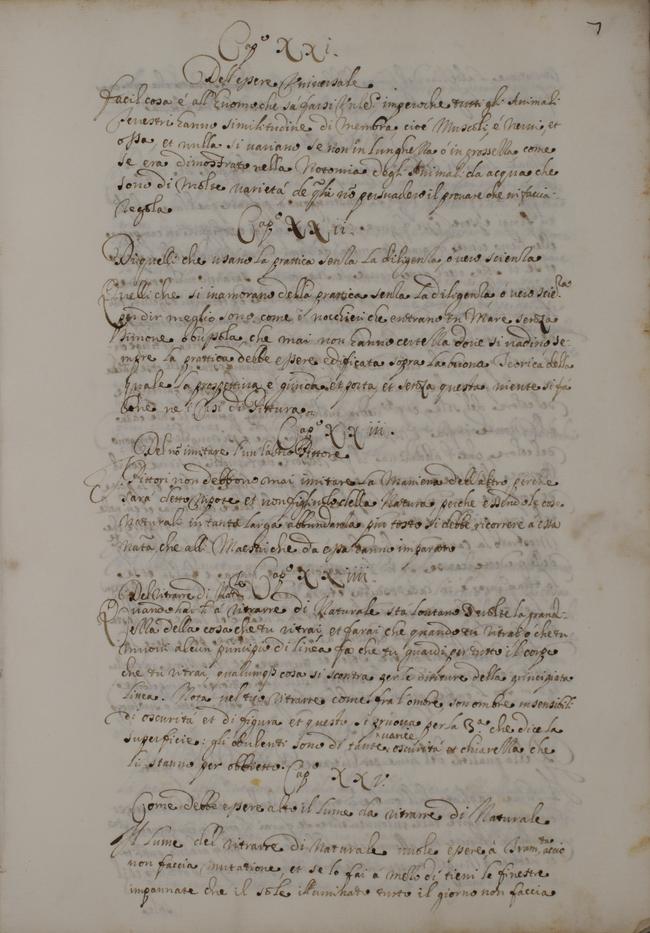 7
Cap.º XXI.
Dell'essere Universale
Facil cosa é all'huomo che sà farsi Universale imperoche tutti gli Animali
terrestri hanno similitudine di membra cioé Muscoli, é Nervi, et
ossa, et nulla si variano se non in lunghezza ó in grossezza come
se era dimostrato nella Notomia degli Animali da acqua che
sono di molte varietá de quali non persuadero il pittore che vi faccia
regola
Cap.º XXII.
Di quelli che usano la prattica senza la diligenza, o vero scienza
Quelli che si inamorano della prattica senza la diligenza o vero scienza
per dir meglio sono come i nocchieri che entrano in Mare senza
Timone ó bussola, che mai non hanno certezza dove si vadino Se-
mpre la prattica debbe essere edificata sopra la buona Teorica della
quale la prospettiva e guida, et porta, et senza questa niente si fa
bene ne i Casi di Pittura
Cap.º XXIII.
Del nõ imitare l'un l'altro Pittore
I Pittori non debbono mai imitare la Maniera dell'altro perche
sara detto Nipote et non figliuolo della Natura perche essendo le cose
Naturali in tanta larga abbundanza piu tosto si debbe ricorrere a essa
Natã, che alli Maestri che da essa hanno imparato
Cap.º XXIIII.
Del ritrarre di Natle
Quando hai à ritrarre di Naturale sta lontano 3 volte la grand-
ezza della cosa che tu ritrai, et farai che quando tu ritrai, o che tu
muovi alcun principio di linea fa che tu guardi per tutto il corpo
che tu ritrai qualunqs cosa si scontra per le diritture della principiata
linea. Nota nel tuo ritrarre come fra l'ombre sono ombre insensibili
di oscurità et di figura et questo si pruova per la 3ª che dice la
superficie: gli obulenti sono di tante varie oscurità et chiarezza che
li stanno per obbietto.
Cap.º XXV.
Come debbe essere alto il lume da ritrarre di Naturale
Il lume del ritrarre di Naturale vuole essere à Tramontã acciò
non faccia mutatione et se lo fai à mezo di tieni le finestre
impannate che il sole illuminato tutto il giorno non faccia